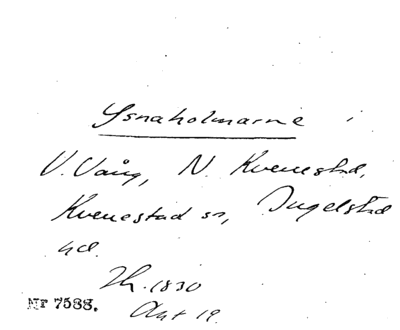 Ysnaholmarne
V. Vång, N. Kvenestad,
Kvenestad sn, Ingelstad
hd.
Th. 1830
Akt 19.
Nr 7588.